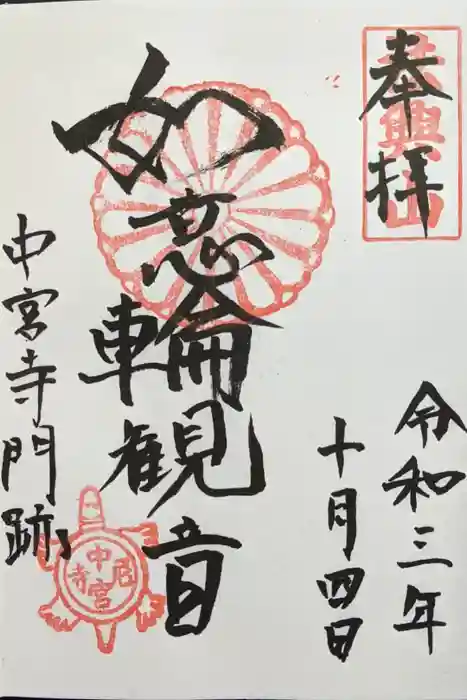 奉拝
法興山
令和三年
十月四日
如意輪観音
中宮寺門跡
中宮尼寺